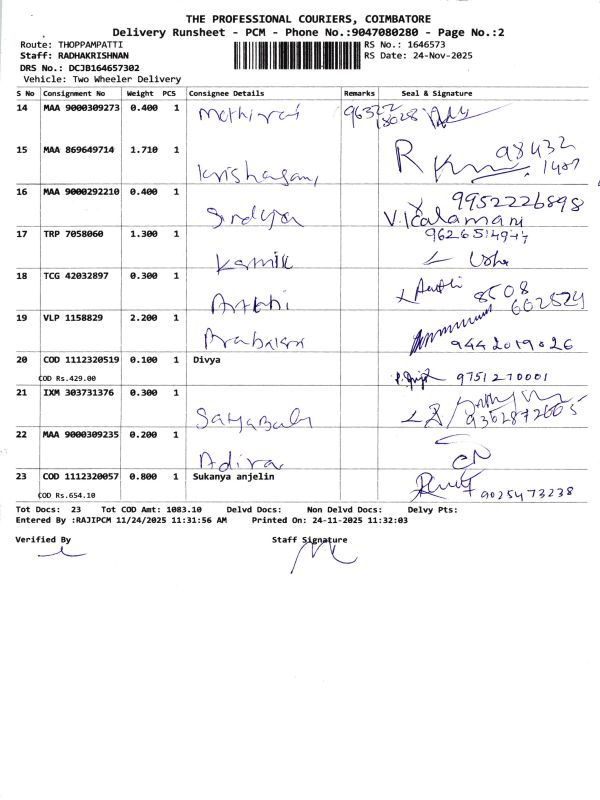 THE PROFESSIONAL COURIERS, COIMBATORE
Delivery Runsheet - PCM - Phone No.:9047080280 - Page No.:2
Route: THOPPAMPATTI RS No.: 1646573
Staff: RADHAKRISHNAN RS Date: 24-Nov-2025
DRS No.: DCJB164657302
Vehicle: Two Wheeler Delivery
S No Consignment No Weight PCS Consignee Details Remarks Seal & Signature
14 MAA 9000309273 0.400 1 Mothiraj
15 MAA 869649714 1.710 1
16 MAA 9000292210 0.400 1 9952226898
V. Kalamani
17 TRP 7058060 1.300 1 Kamik
Usha
18 TCG 42032897 0.300 1 Arthi 8508
602529
19 VLP 1158829 2.200 1 9442019026
20 COD 1112320519 0.100 1 Divya
COD Rs.429.00 9751270001
21 IXM 303731376 0.300 1
22 MAA 9000309235 0.200 1 Adira
23 COD 1112320057 0.800 1 Sukanya anjelin
COD Rs.654.10 9025473238
Tot Docs: 23 Tot COD Amt: 1083.10 Delvd Docs: Non Delvd Docs: Delvy Pts:
Entered By :RAJIPCM 11/24/2025 11:31:56 AM Printed On: 24-11-2025 11:32:03
Verified By Staff Signature